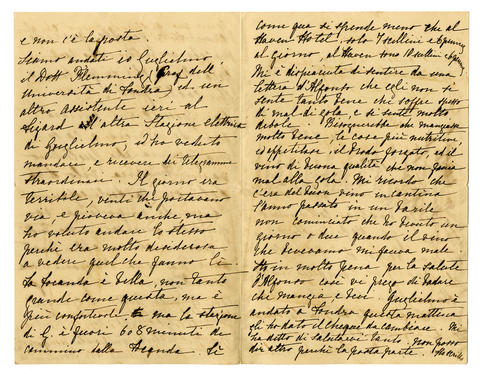 e non c'è la posta.
Siamo andati io Guglielmo,
il Dott Flemming, Prof dell'
università di Londra ed un
altro assistente ieri al
Lizard all'altra stazione elettrica
di Guglielmo, ed ho veduto
mandare, e ricevere dei telegrammi
straordinari. Il giorno era
terribile, venti che portavano
via, e pioveva anche ma
ho voluto andare lo stesso
perchè ero molto desiderosa
a vedere quel che fanno lì.
La locanda è bella, non tanto
grande come questa, ma è
più confortevole ma la stazione
di G. è fuori 6 o 8 minuti di
cammino della locanda. Si
come qua si spende meno che al
Haven Hotel, solo 7 scellini e 6 pence
al giorno, al Haven sono 10 scellini e 6 pence.
Mi è dispiaciuta di sentire da una
lettera d'Alfonso che egli non si
sente tanto bene che soffre spesso
di mal di gola, e si sente molto
debole. Bisognerebbe che mangiasse
molto bene le cose più nutritive,
ed appetitose, il brodo forzato, ed il
vino di buona qualità che non faccia
mal alla gola. Mi ricordo che
c'era del buon vino in cantina
l'anno passato in un barile
non cominciato che ho bevuto un
giorno o due quando il vino
che bevevamo mi faceva male.
Sto in molta pena per la salute
d'Alfonso così vi prego di badare
che mangia e bevi. Guglielmo è
andato a Londra questa mattina
gli ho dato il cheque da cambiare. Mi
ha detto di salutarvi tanto. non posso
dir altro perchè la posta parte.